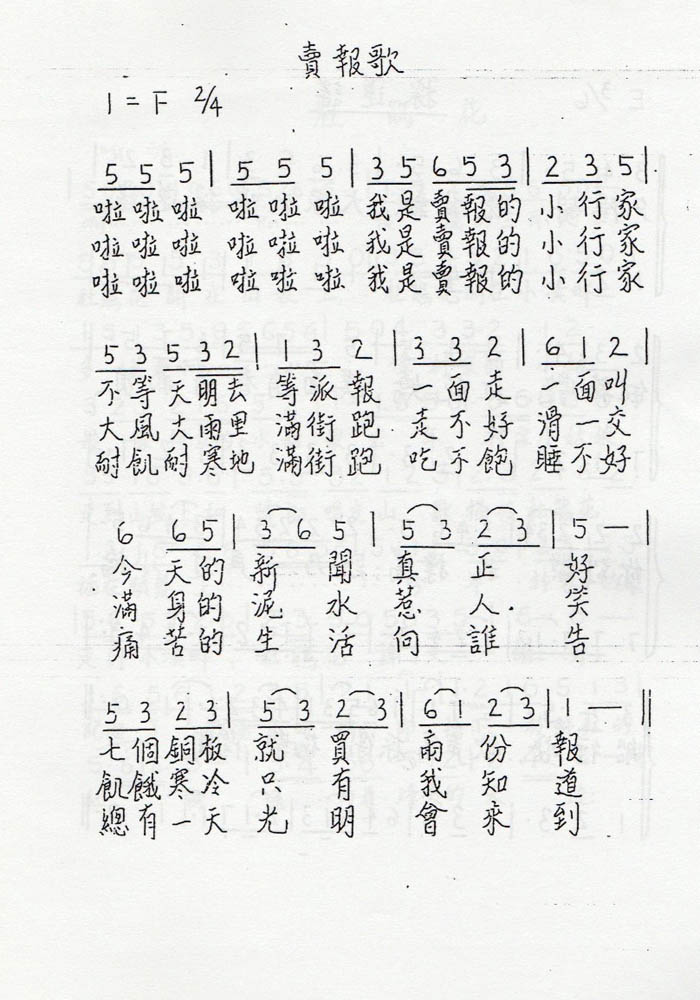 賣報歌
1 = F 2/4
5 5 5 | 5 5 5 | 3 5 6 5 3 | 2 3 5 |
啦啦啦 啦啦啦 我是賣報的 小行家
啦啦啦 啦啦啦 我是賣報的 小行家
啦啦啦 啦啦啦 我是賣報的 小行家
5 3 5 3 2 | 1 3 2 | 3 3 2 | 6 1 2 |
不等天明去 等派報 一面走 一面叫
大風大雨里 滿街跑 走不好 滑一交
耐飢耐寒地 滿街跑 吃不飽 睡不好
6 6 5 | 3 6 5 | 5 3 2 3 | 5 — |
今天的 新聞 真正 好
滿身的 泥水 惹人 笑
痛苦的 生活 向誰 告
5 3 2 3 | 5 3 2 3 | 6 1 2 3 | 1 — ‖
七個銅板 就買 兩份 報
飢餓寒冷 只有 我知 道
總有一天 光明 會來 到